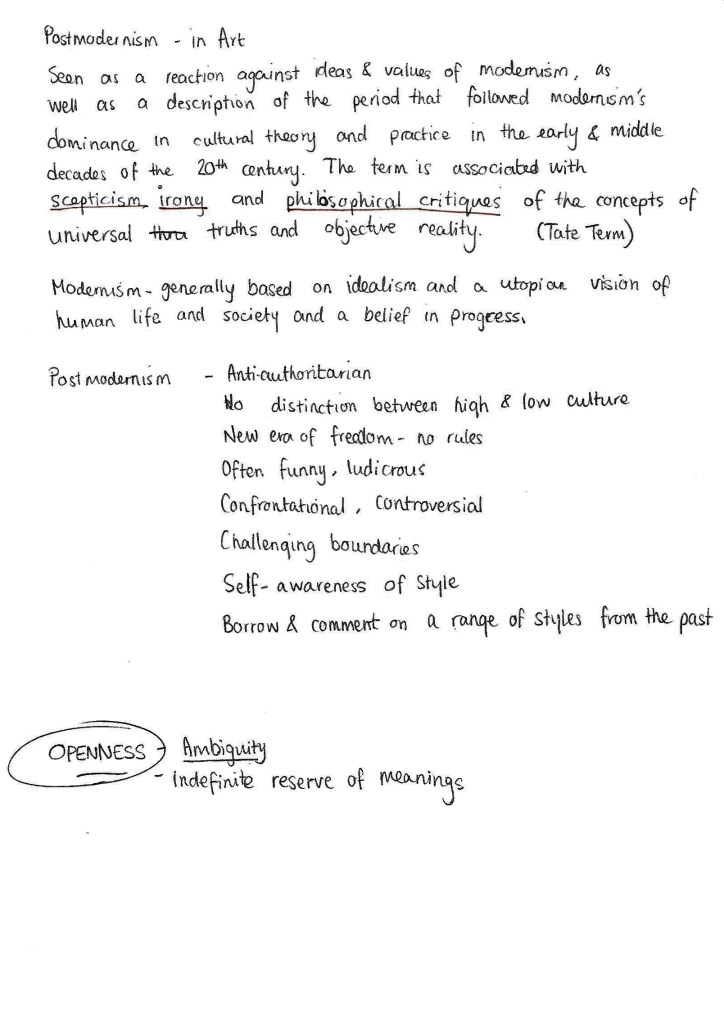 Postmodernism - in Art
Seen as a reaction against ideas & values of modernism, as
well as a description of the period that followed modernism's
dominance in cultural theory and practice in the early & middle
decades of the 20th century. The term is associated with
scepticism, irony and philosophical critiques of the concepts of
universal truths and objective reality. (Tate Term)
Modernism - generally based on idealism and a utopian vision of
human life and society and a belief in progress.
Postmodernism - Anti-authoritarian
No distinction between high & low culture
New era of freedom - no rules
Often funny, ludicrous
Confrontational, controversial
Challenging boundaries
Self-awareness of style
Borrow & comment on a range of styles from the past
OPENNESS - Ambiguity
- indefinite reserve of meanings